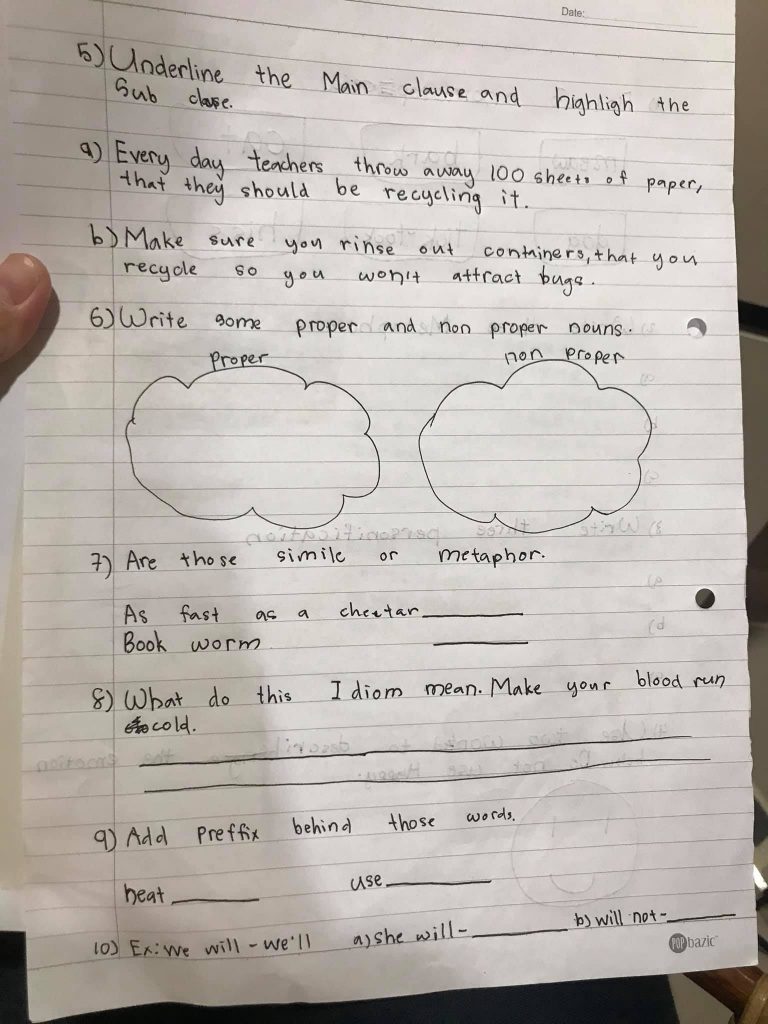 Date:
5) Underline the Main clause and highligh the
Sub clase.
a) Every day teachers throw away 100 sheets of paper,
that they should be recycling it.
b) Make sure you rinse out containers, that you
recycle so you won't attract bugs.
6) Write some proper and non proper nouns.
proper non proper
7) Are those simile or metaphor.
As fast as a cheetar
Book worm
8) What do this Idiom mean. Make your blood run
cold.
9) Add preffix behind those words.
heat use
10) Ex: We will - we'll a) she will- b) will not-
POP bazic